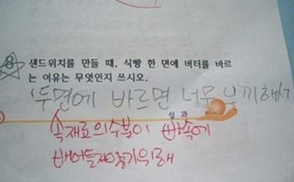 8. 샌드위치를 만들 때, 식빵 한 면에 버터를 바르
는 이유는 무엇인지 쓰시오.
두면에 바르면 너무 부끄해가
속재료의 수분이 빵속에
배어들지않기위해